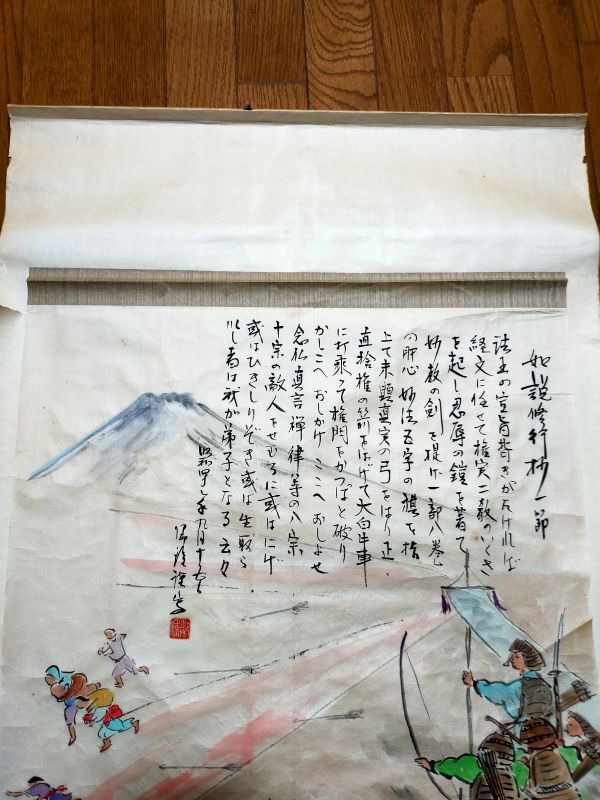 如説修行抄一節
法王の宣旨背きがたければ
経文に任せて権実二教のいくさ
を起し忍辱の鎧を著て
妙教の剣を提げ一部八巻
の肝心妙法五字の旗を指
上て未顕真実の弓をはり正
直捨権の箭をはげて大白牛車
に打乗って権門をかっぱと破り
かしこへおしかけここへおしよせ
念仏真言禅律等の八宗
十宗の敵人をせむるに或はにげ
或はひきしりぞき或は生取ら
れし者は我が弟子となる云々
昭和
九月十